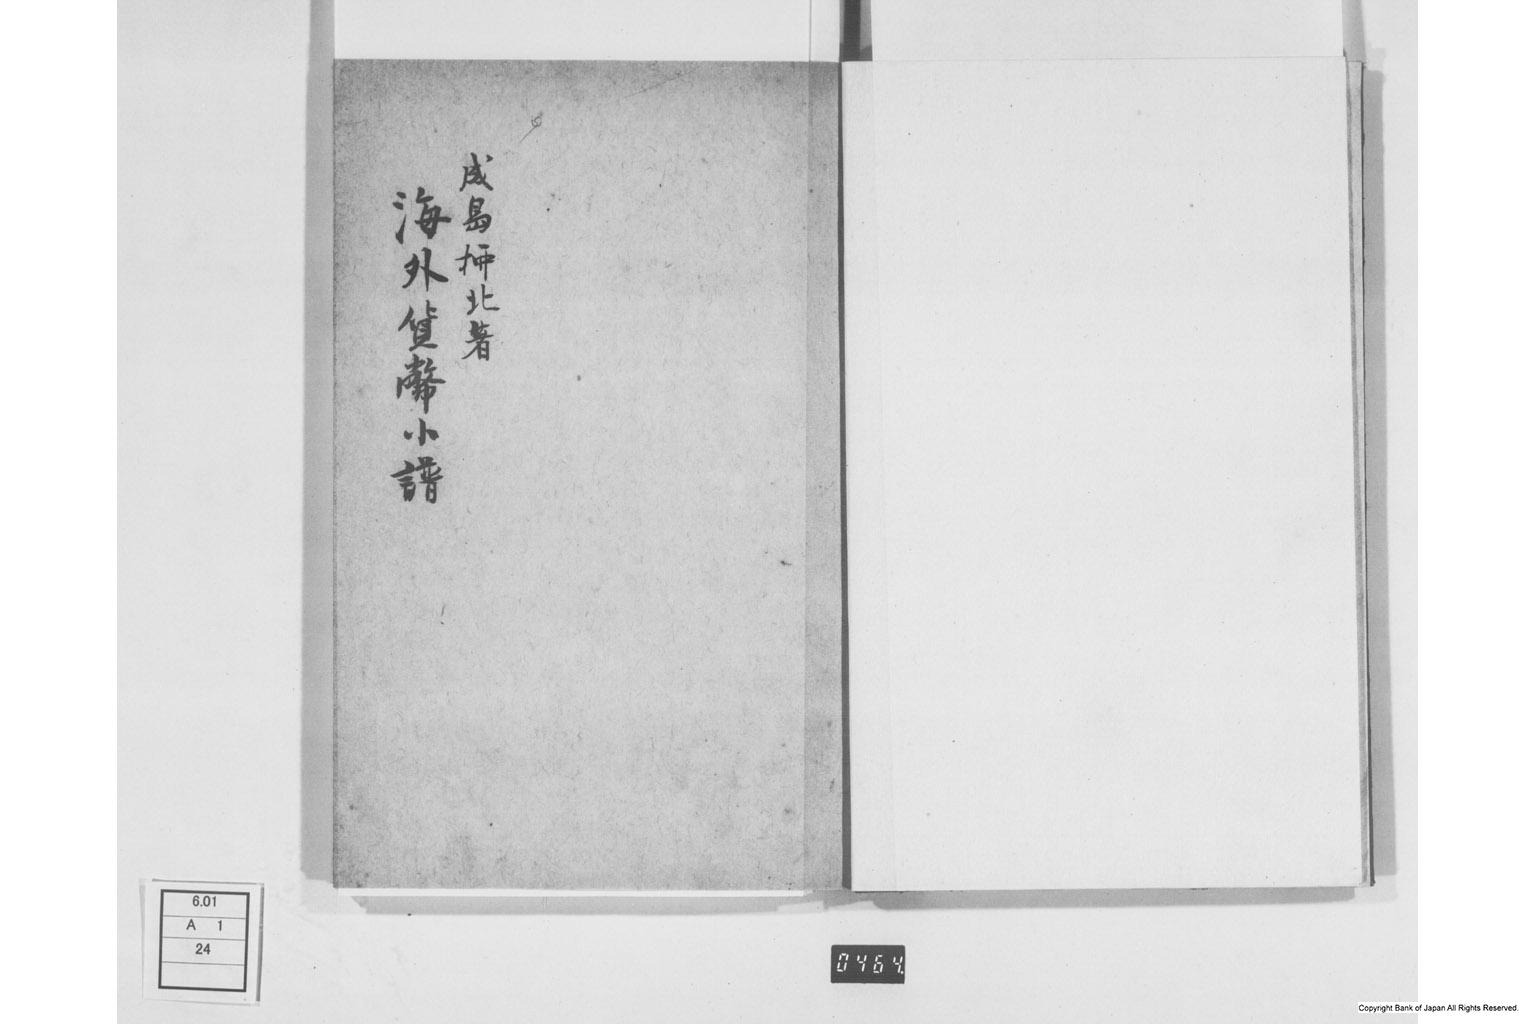 成島柳北著
海外貨幣小譜
6.01
A 1
24
0464
Copyright Bank of Japan All Rights Reserved.